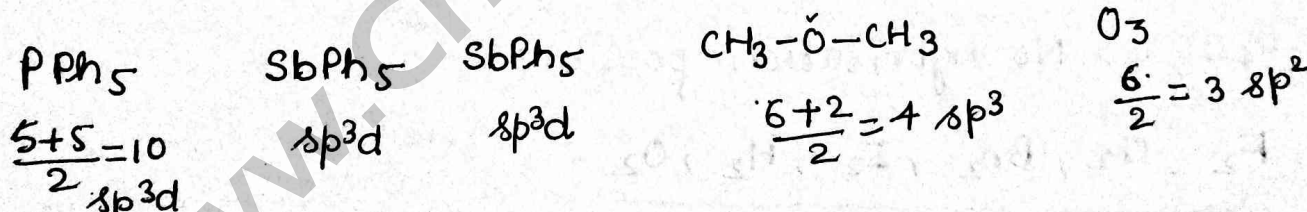 PPh₅ SbPh₅ SbPh₅ CH₃-Ö-CH₃ O₃
5+5/2=10 sp³d sp³d 6+2/2=4 sp³ 6/2=3 sp²
sp³d